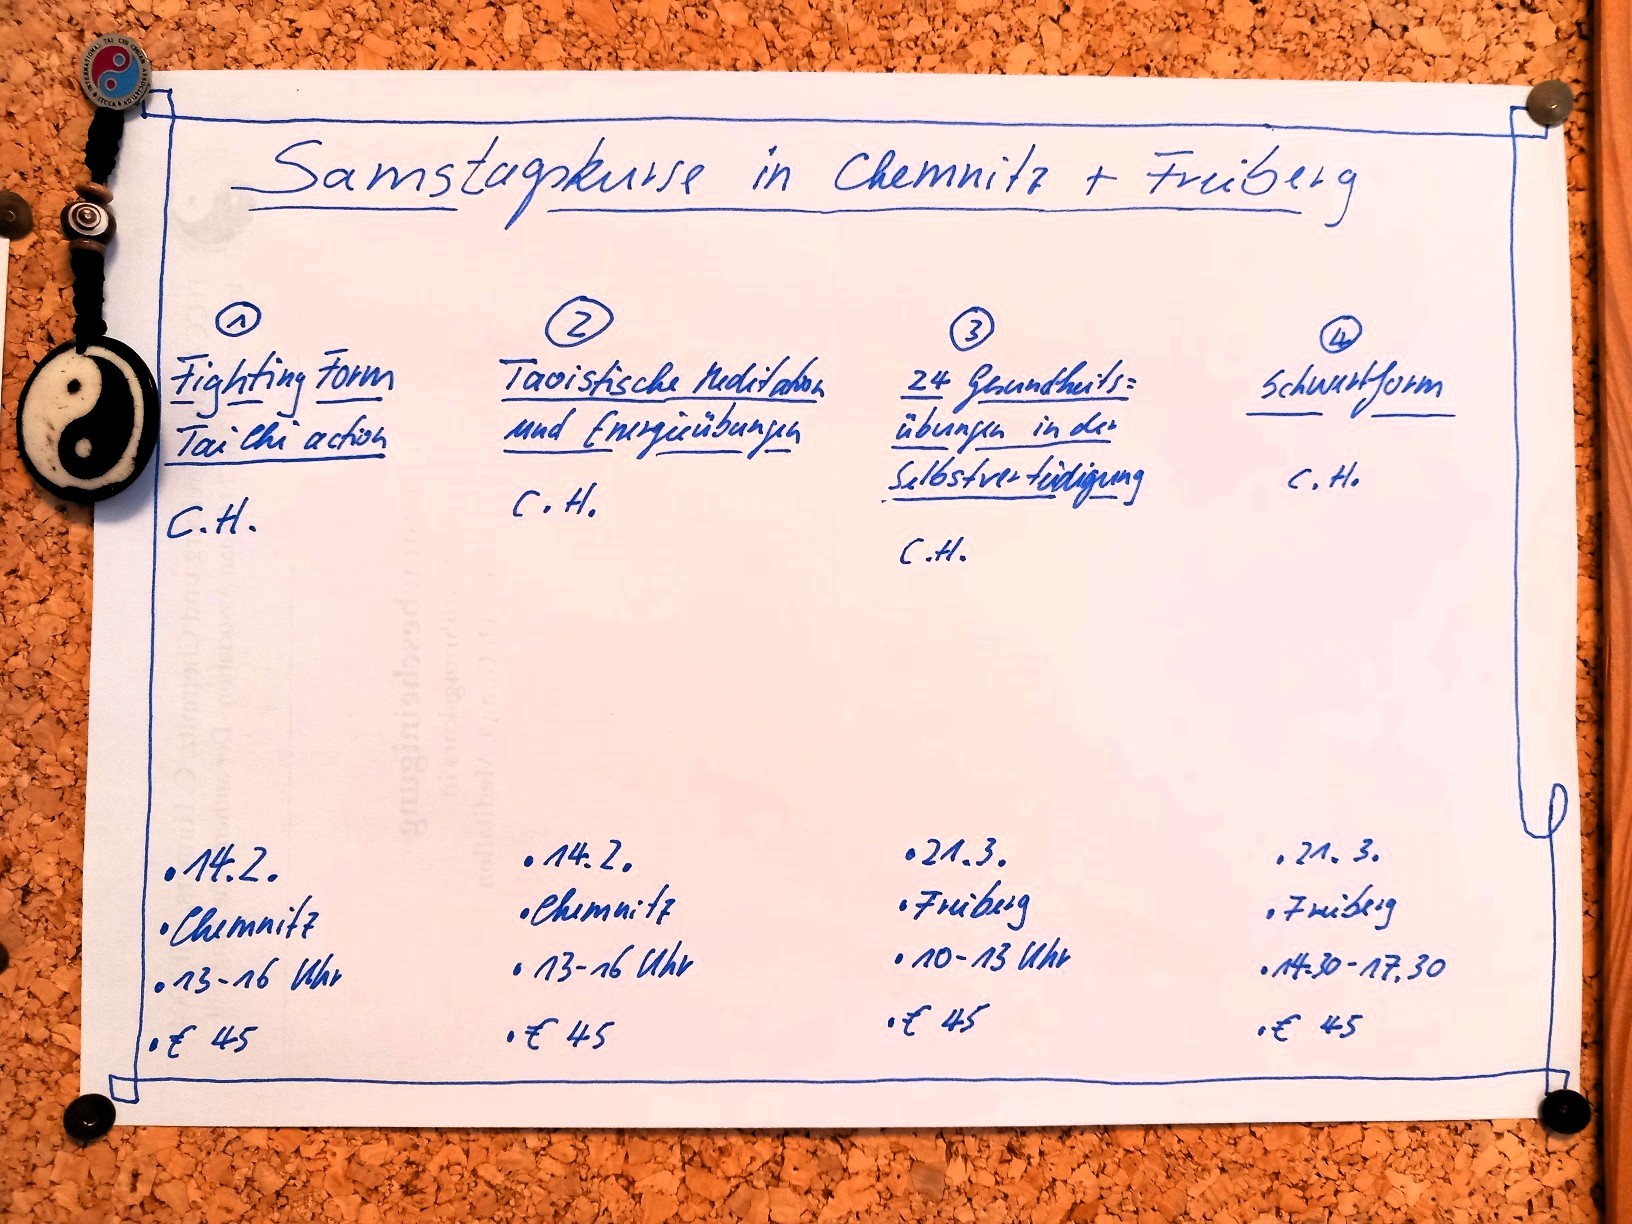 INTERNATIONAL TAI CHI CHUAN ASSOCIATION
ITCCA
Samstagskurse in Chemnitz + Freiberg
1
Fighting Form
Tai Chi action
C.H.
2
Taoistische Meditation
und Energieübungen
C.H.
3
24 Gesundheits=
übungen in der
Selbstverteidigung
C.H.
4
Schwertform
C.H.
• 14.2.
• Chemnitz
• 13-16 Uhr
• € 45
• 14.2.
• Chemnitz
• 13-16 Uhr
• € 45
• 21.3.
• Freiberg
• 10-13 Uhr
• € 45
• 21.3.
• Freiberg
• 14.30-17.30
• € 45